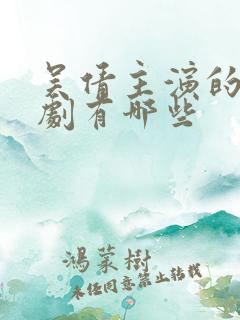 吴倩主演的
劇有哪些
鴻蒙樹
未经同意禁止转载